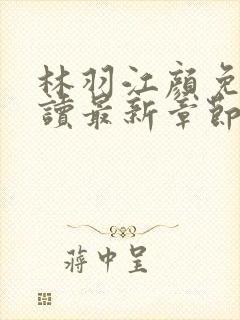 林羽江顏免
讀最新章節
蔣中呈